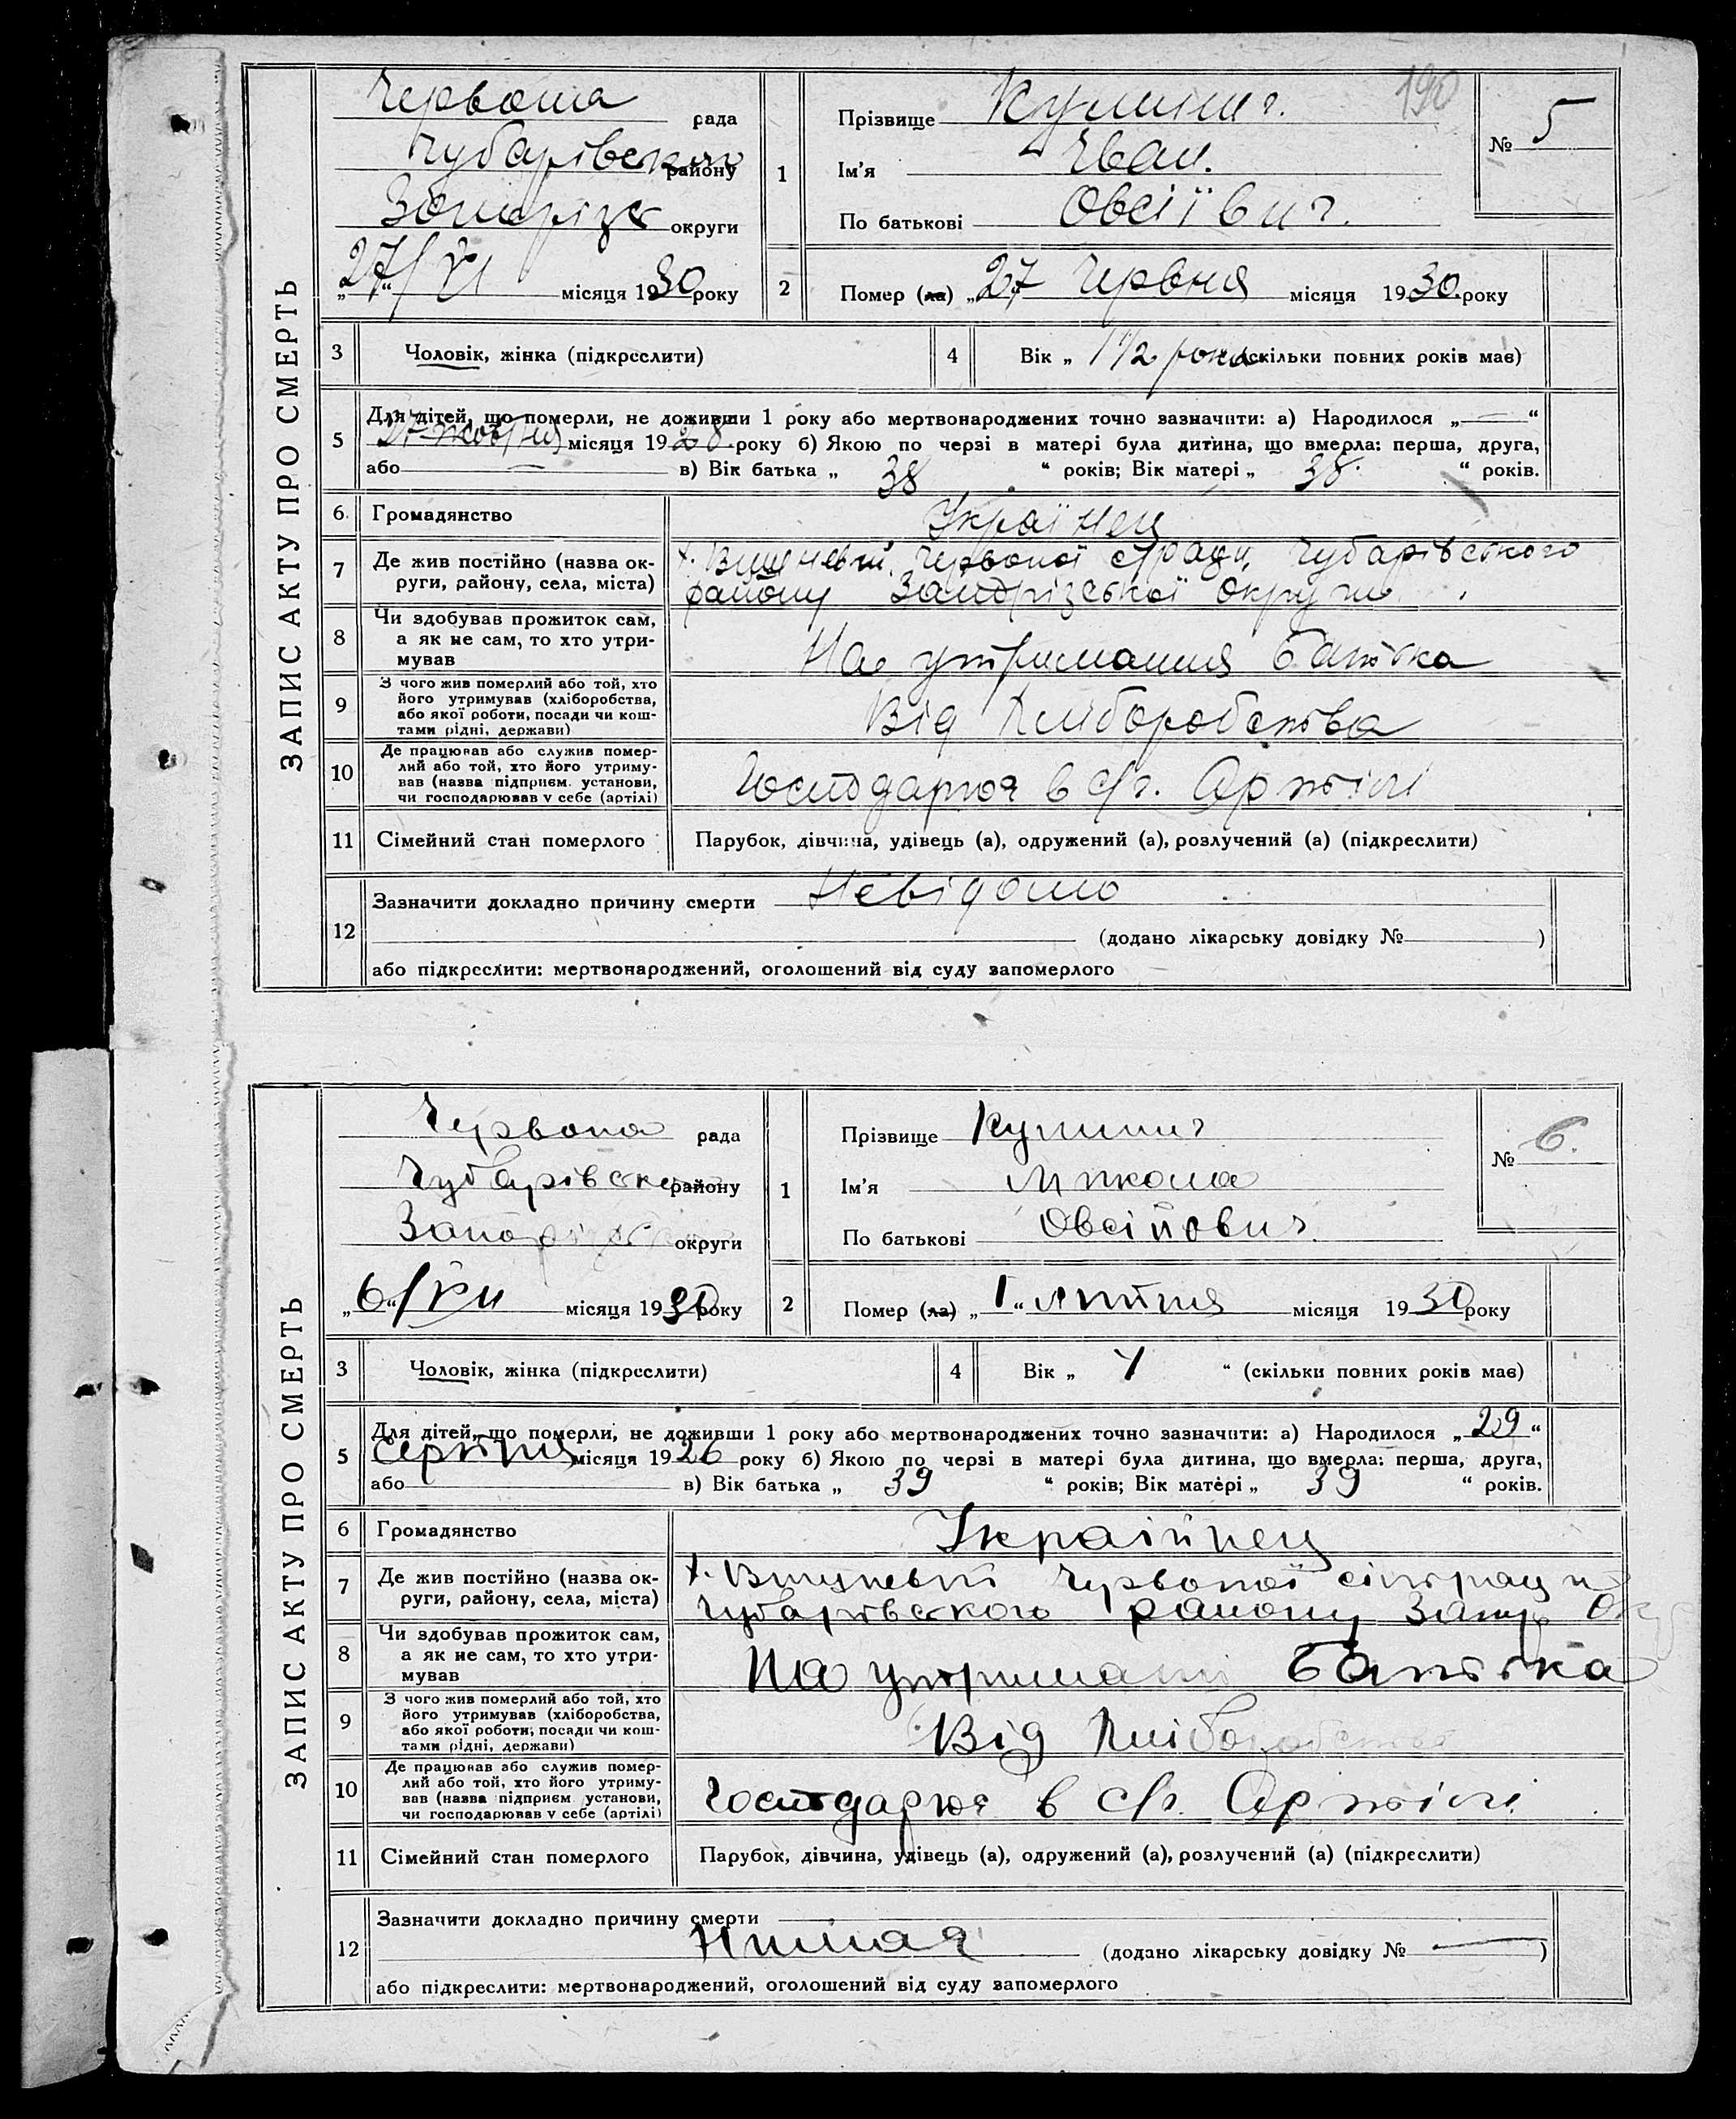 190
ЗАПИС АКТУ ПРО СМЕРТЬ
Червона рада
Чубарівського району
Запоріз округи
„27/VI“ місяця 1930 року
1
Прізвище Кулинич.
Ім'я Іван.
По батькові Овсіївич.
№ 5
2 Помер (ла) „27 Червня місяця 1930. року
3 Чоловік, жінка (підкреслити)
4 Вік „ 1 1/2 рока скільки повних років має)
5 Для дітей, що померли, не доживши 1 року або мертвонароджених точно зазначити: а) Народилося „—“
27 жовтня місяця 1928 року б) Якою по черзі в матері була дитина, що вмерла: перша, друга,
або — в) Вік батька „ 38 “ років; Вік матері „ 38. “ років.
6 Громадянство Українец
7 Де жив постійно (назва округи, району, села, міста)
х. Вишневий, Червоної с/ради, Чубарівського
району Запорізської округи
8 Чи здобував прожиток сам, а як не сам, то хто утримував
На утримання батька
9 З чого жив померлий або той, хто його утримував (хліборобства, або якої роботи, посади чи коштами рідні, держави)
Від хліборобства
10 Де працював або служив померлий або той, хто його утримував (назва підприєм. установи, чи господарював у себе (артілі)
Господарює в с/г. Артілі
11 Сімейний стан померлого Парубок, дівчина, удівець (а), одружений (а), розлучений (а) (підкреслити)
12 Зазначити докладно причину смерти Невідомо
(додано лікарську довідку № )
або підкреслити: мертвонароджений, оголошений від суду запомерлого
ЗАПИС АКТУ ПРО СМЕРТЬ
Червона рада
Чубарівськ району
Запоріз округи
„6“/VII місяця 1930 року
1
Прізвище Кулинич
Ім'я Микола
По батькові Овсійович.
№ 6.
2 Помер (ла) „1“ липня місяця 1930 року
3 Чоловік, жінка (підкреслити)
4 Вік „ “ (скільки повних років має)
5 Для дітей, що померли, не доживши 1 року або мертвонароджених точно зазначити: а) Народилося „29“
серпня місяця 1926 року б) Якою по черзі в матері була дитина, що вмерла: перша, друга,
або в) Вік батька „ 39 “ років; Вік матері „ 39 “ років.
6 Громадянство Украійнец
7 Де жив постійно (назва округи, району, села, міста)
х. Вишневий Червоної сільради
Чубарівського району Запор Окр
8 Чи здобував прожиток сам, а як не сам, то хто утримував
На утримані батька
9 З чого жив померлий або той, хто його утримував (хліборобства, або якої роботи, посади чи коштами рідні, держави)
Від хліборобства
10 Де працював або служив померлий або той, хто його утримував (назва підприєм. установи, чи господарював у себе (артілі)
Господарює в с/г. Артілі.
11 Сімейний стан померлого Парубок, дівчина, удівець (а), одружений (а), розлучений (а) (підкреслити)
12 Зазначити докладно причину смерти
(додано лікарську довідку № — )
або підкреслити: мертвонароджений, оголошений від суду запомерлого